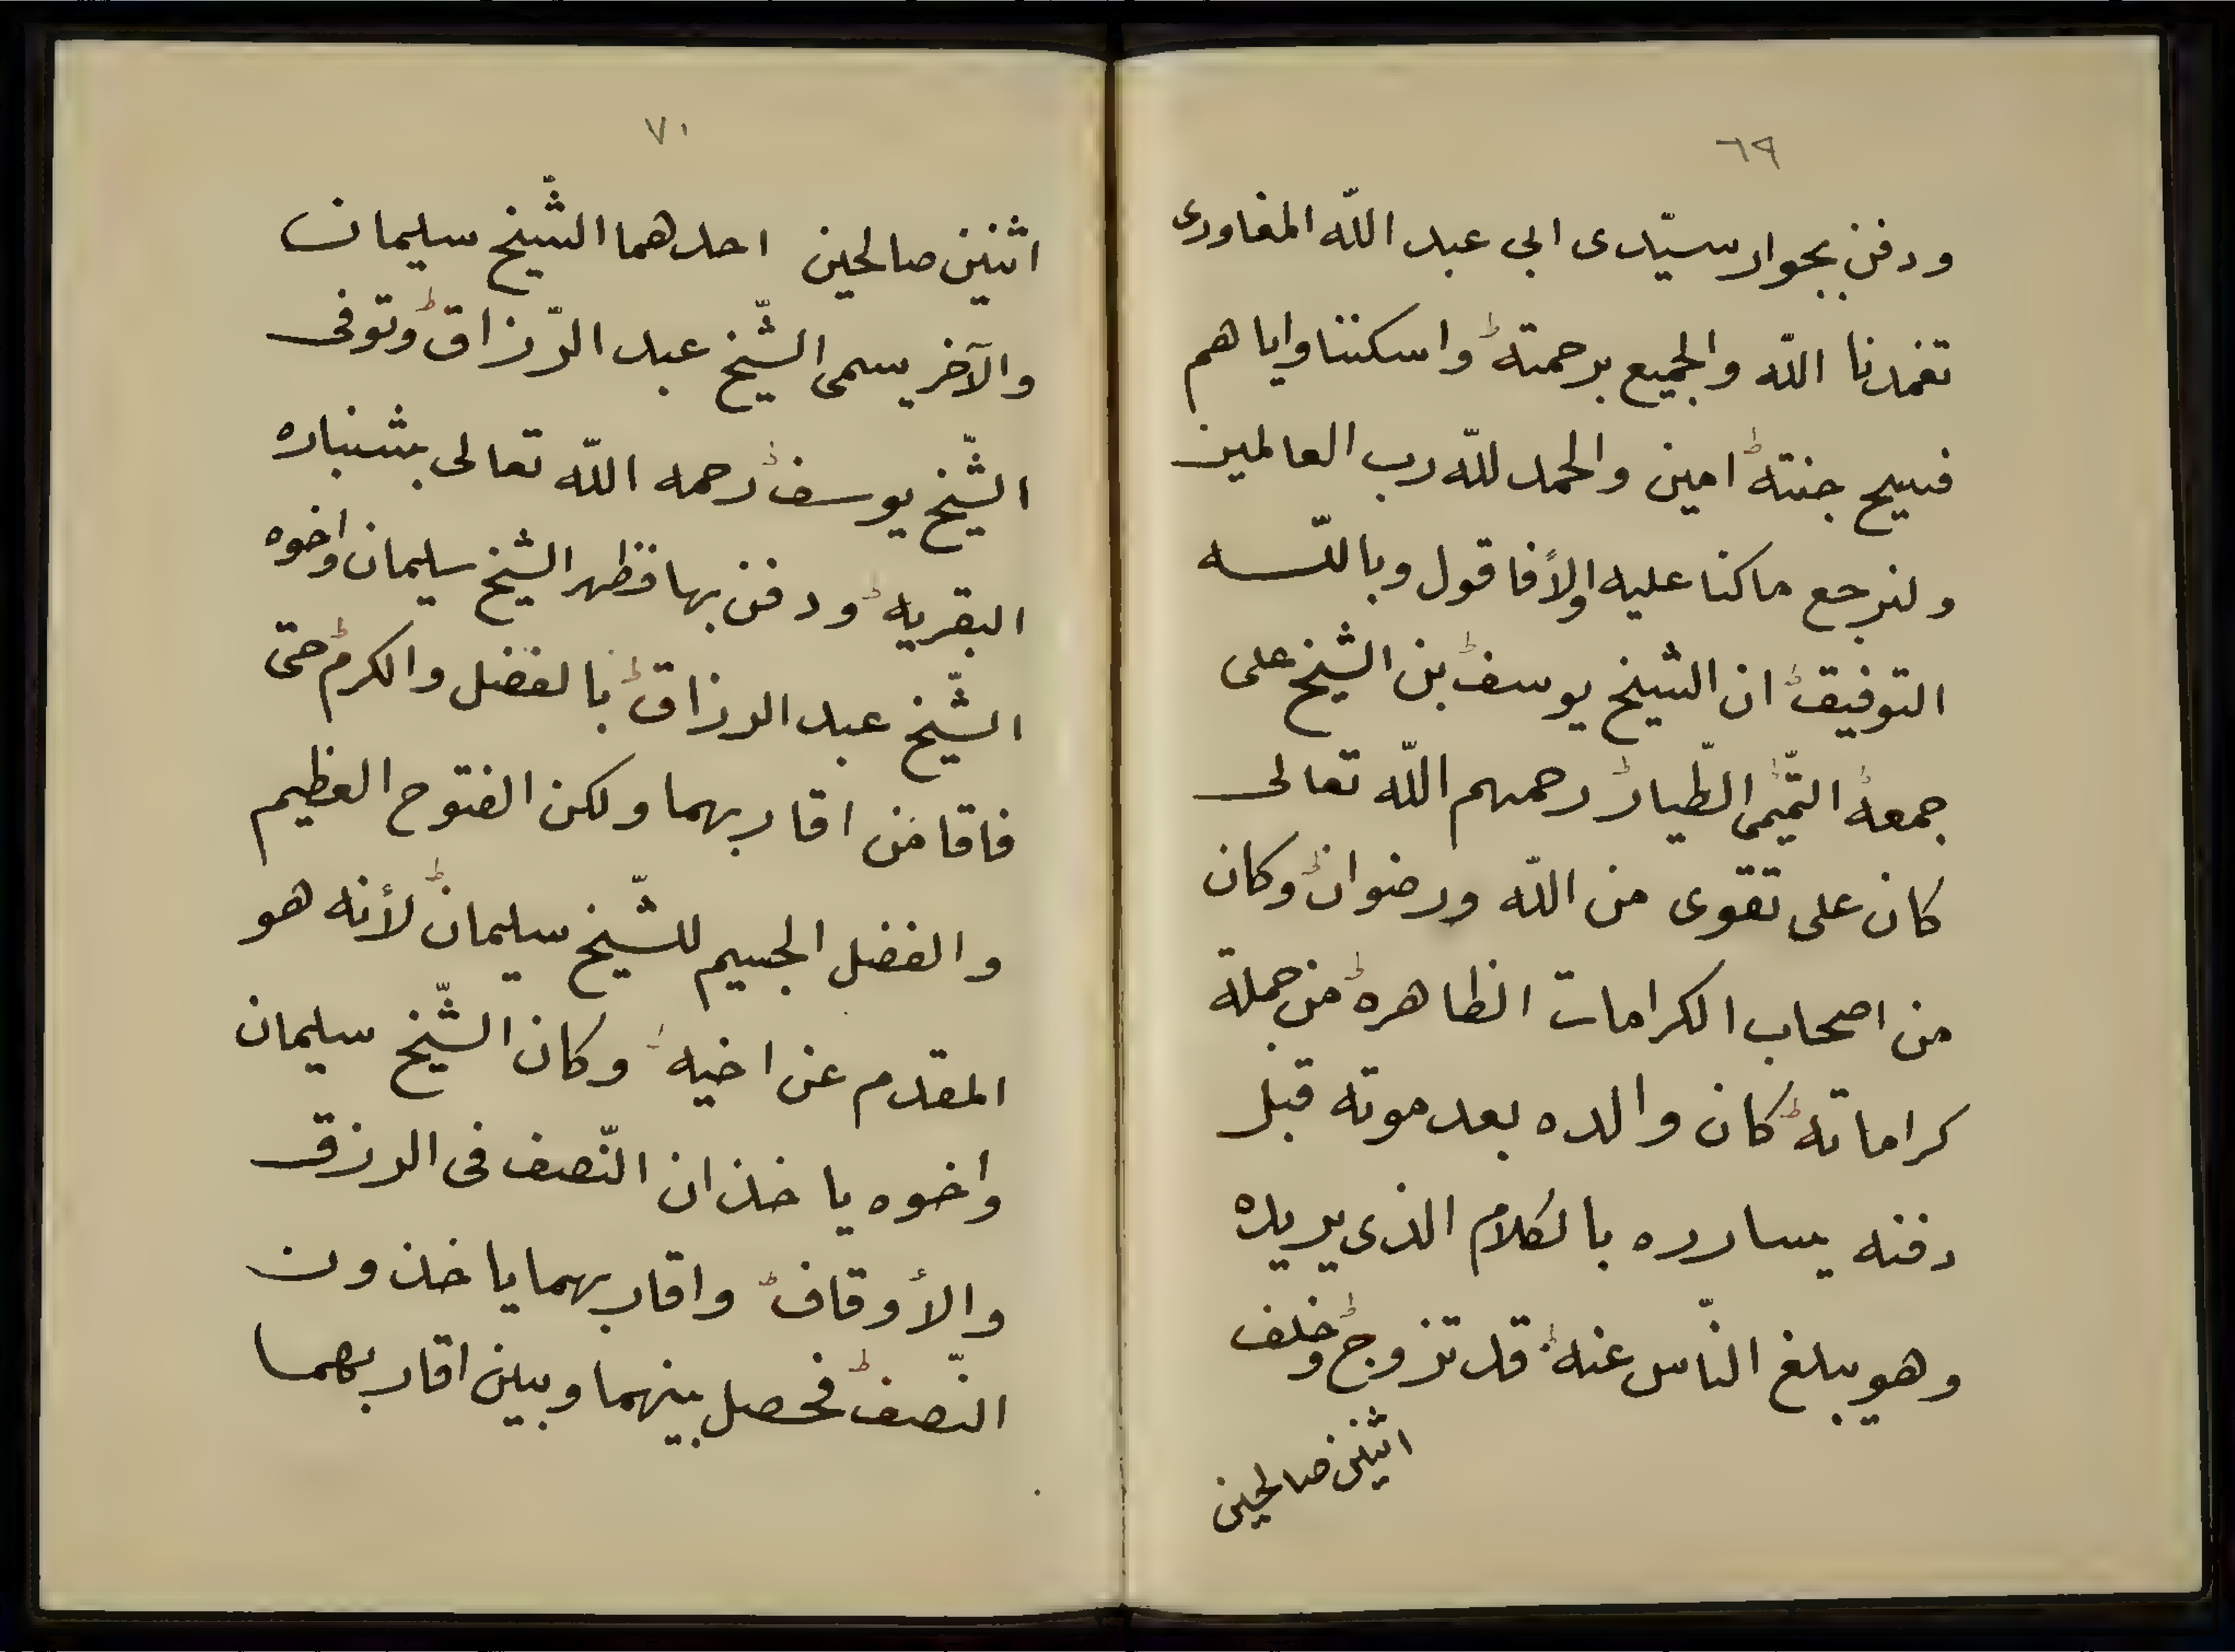 ٦٩
ودفن بجوار سيّدى ابي عبد اللّه المغاورى
تغمدنا اللّه والجميع برحمته واسكننا واياهم
فسيح جنته امين والحمد للّه رب العالمين
ولنرجع ماكنا عليه اولاً فاقول وباللّه
التوفيق ان الشيخ يوسف بن الشيخ على
جمعه التّميمى الطّيار رحمهم اللّه تعالى
كان على تقوى من اللّه ورضوان وكان
من اصحاب الكرامات الظاهره من جملة
كراماته كان والده بعد موته قبل
دفنه يسارره بالكلام الذى يريده
وهو يبلغ النّاس عنه قد تزوج وخلف
اثنين صالحين
٧٠
اثنين صالحين احدهما الشّيخ سليمان
والآخر يسمى الشّيخ عبد الرّزاق وتوفى
الشّيخ يوسف رحمه اللّه تعالى بشنباره
البقريه ودفن بها فظهر الشيخ سليمان واخوه
الشّيخ عبد الرزاق بالفضل والكرم حتى
فاقا من اقاربهما ولكن الفتوح العظيم
والفضل الجسيم للشّيخ سليمان لأنه هو
المقدم عن اخيه وكان الشّيخ سليمان
واخوه ياخذان النّصف فى الرزق
والأوقاف واقاربهما ياخذون
النّصف فحصل بينهما وبين اقاربهما